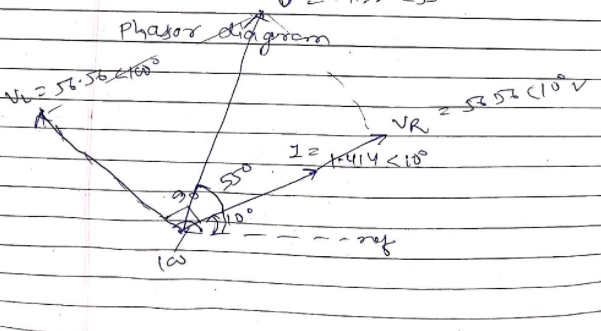 Phasor diagram
VL = 56.56 <100°
VR = 56.56 <10° V
I = 1.414 <10°
55°
90
10°
ref
100